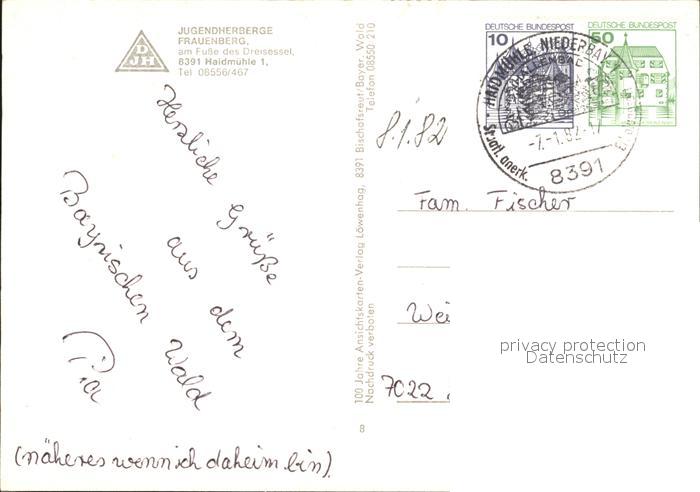 JUGENDHERBERGE
FRAUENBERG,
am Fuße des Dreisessel,
8391 Haidmühle 1,
Tel 08556/467
DJH
Herzliche Grüße
aus dem
Bayrischen Wald
Pia
(näheres wenn ich daheim bin).
100 Jahre Ansichtskarten-Verlag Löwenhag, 8391 Bischofsreut/Bayer. Wald
Nachdruck verboten Telefon 08550 210
8
8.1.82
DEUTSCHE BUNDESPOST
10
DEUTSCHE BUNDESPOST
50
HAIDMÜHLE, NIEDERBAY
Staatl. anerk.
-7.-1.82-17
8391
Fam. Fischer
Wei
7022
privacy protection
Datenschutz